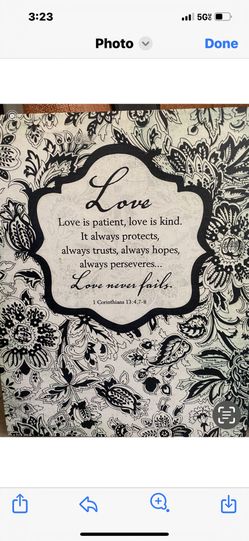 3:23
5G
Photo
Done
Love
Love is patient, love is kind.
It always protects,
always trusts, always hopes,
always perseveres...
Love never fails.
1 Corinthians 13:4,7-8